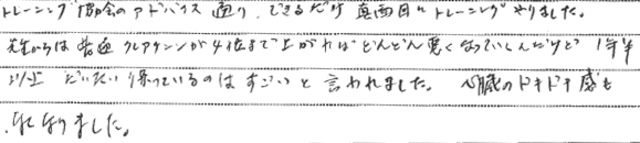 トレーニング協会のアドバイス通り、できるだけ真面目にトレーニングやりました。
先生からは普通クレアチニンが4位まで上がればどんどん悪くなっていくんだけど1年半
以上だいたい保っているのはすごいと言われました。心臓のドキドキ感も
なくなりました。